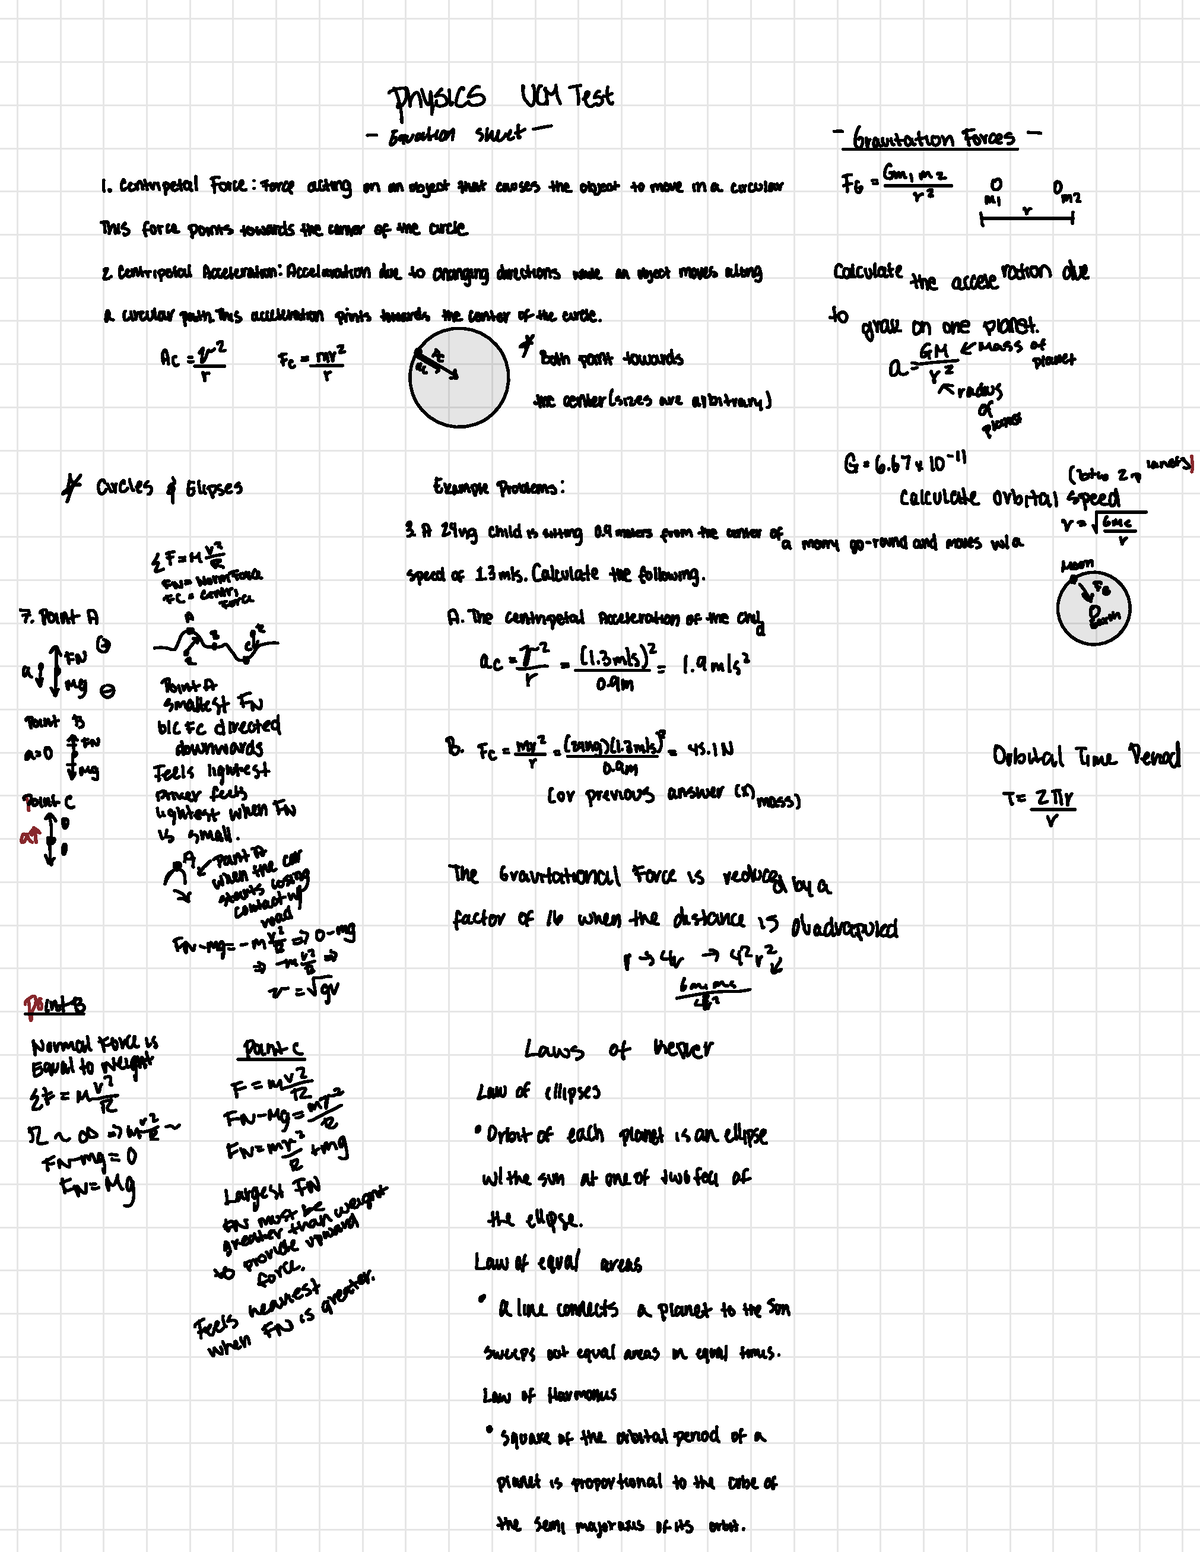 Physics UCM Test
- Equation sheet -
1. Centripetal Force: Force acting on an object that causes the object to move in a circular
This force points towards the center of the circle
2. Centripetal Acceleration: Acceleration due to changing directions while an object moves along
a circular path. This acceleration points towards the center of the circle.
Ac = v²/r Fc = mv²/r
Fc
ac
* Both point towards
the center (sizes are arbitrary)
- Gravitation Forces -
F_G = Gm₁m₂/r²
m₁ m₂
r
Calculate the acceleration due
to grav on one planet.
a = GM/r² ← Mass of planet
↖ radius of planet
G = 6.67 x 10⁻¹¹
(btw 2 planets)
Calculate orbital speed
v = √(Gmc/r)
Moon
F_G
Earth
Orbital Time Period
T = 2πr/v
* Circles & Elipses
ΣF = M v²/R
FN = Norm Force
FC = Centri Force
A B C
7. Point A
a↓ FN ⊕
Mg ⊖
Point B
a=0 FN
Mg
Point C
a↑
Point A
smallest FN
b/c Fc directed
downwards
Feels lightest
lightest when FN
is small.
A ← Point A
when the car
starts losing
contact w/
road
FN-mg = -m v²/R => 0-mg
=> -m v²/R =>
v = √gr
Point B
Normal Force is
Equal to Weight
ΣF = M v²/R
R ~ ∞ => M v²/R ~
FN-mg = 0
FN = Mg
Point C
F = m v²/R
FN-Mg = mv²/R
FN = mv²/R + mg
Largest FN
FN must be
greater than weight
to provide upward
force.
Feels heaviest
when FN is greater.
Example Problems:
3. A 24kg child is sitting 0.9 meters from the center of a merry go-round and moves w/ a
speed of 1.3 m/s. Calculate the following.
A. The Centripetal Acceleration of the Child
ac = v²/r = (1.3m/s)²/0.9m = 1.9 m/s²
B. Fc = mv²/r = (24kg)(1.3m/s)²/0.9m = 45.1 N
(or previous answer (x) mass)
The Gravitational Force is reduced by a
factor of 16 when the distance is Quadrupled
r → 4r → 4²r²
Laws of Kepler
Law of ellipses
• Orbit of each planet is an ellipse
w/ the sun at one of two foci of
the ellipse.
Law of equal areas
• a line connects a planet to the Son
sweeps out equal areas in equal times.
Law of Harmonies
• Square of the orbital period of a
planet is proportional to the cube of
the semi major axis of its orbit.